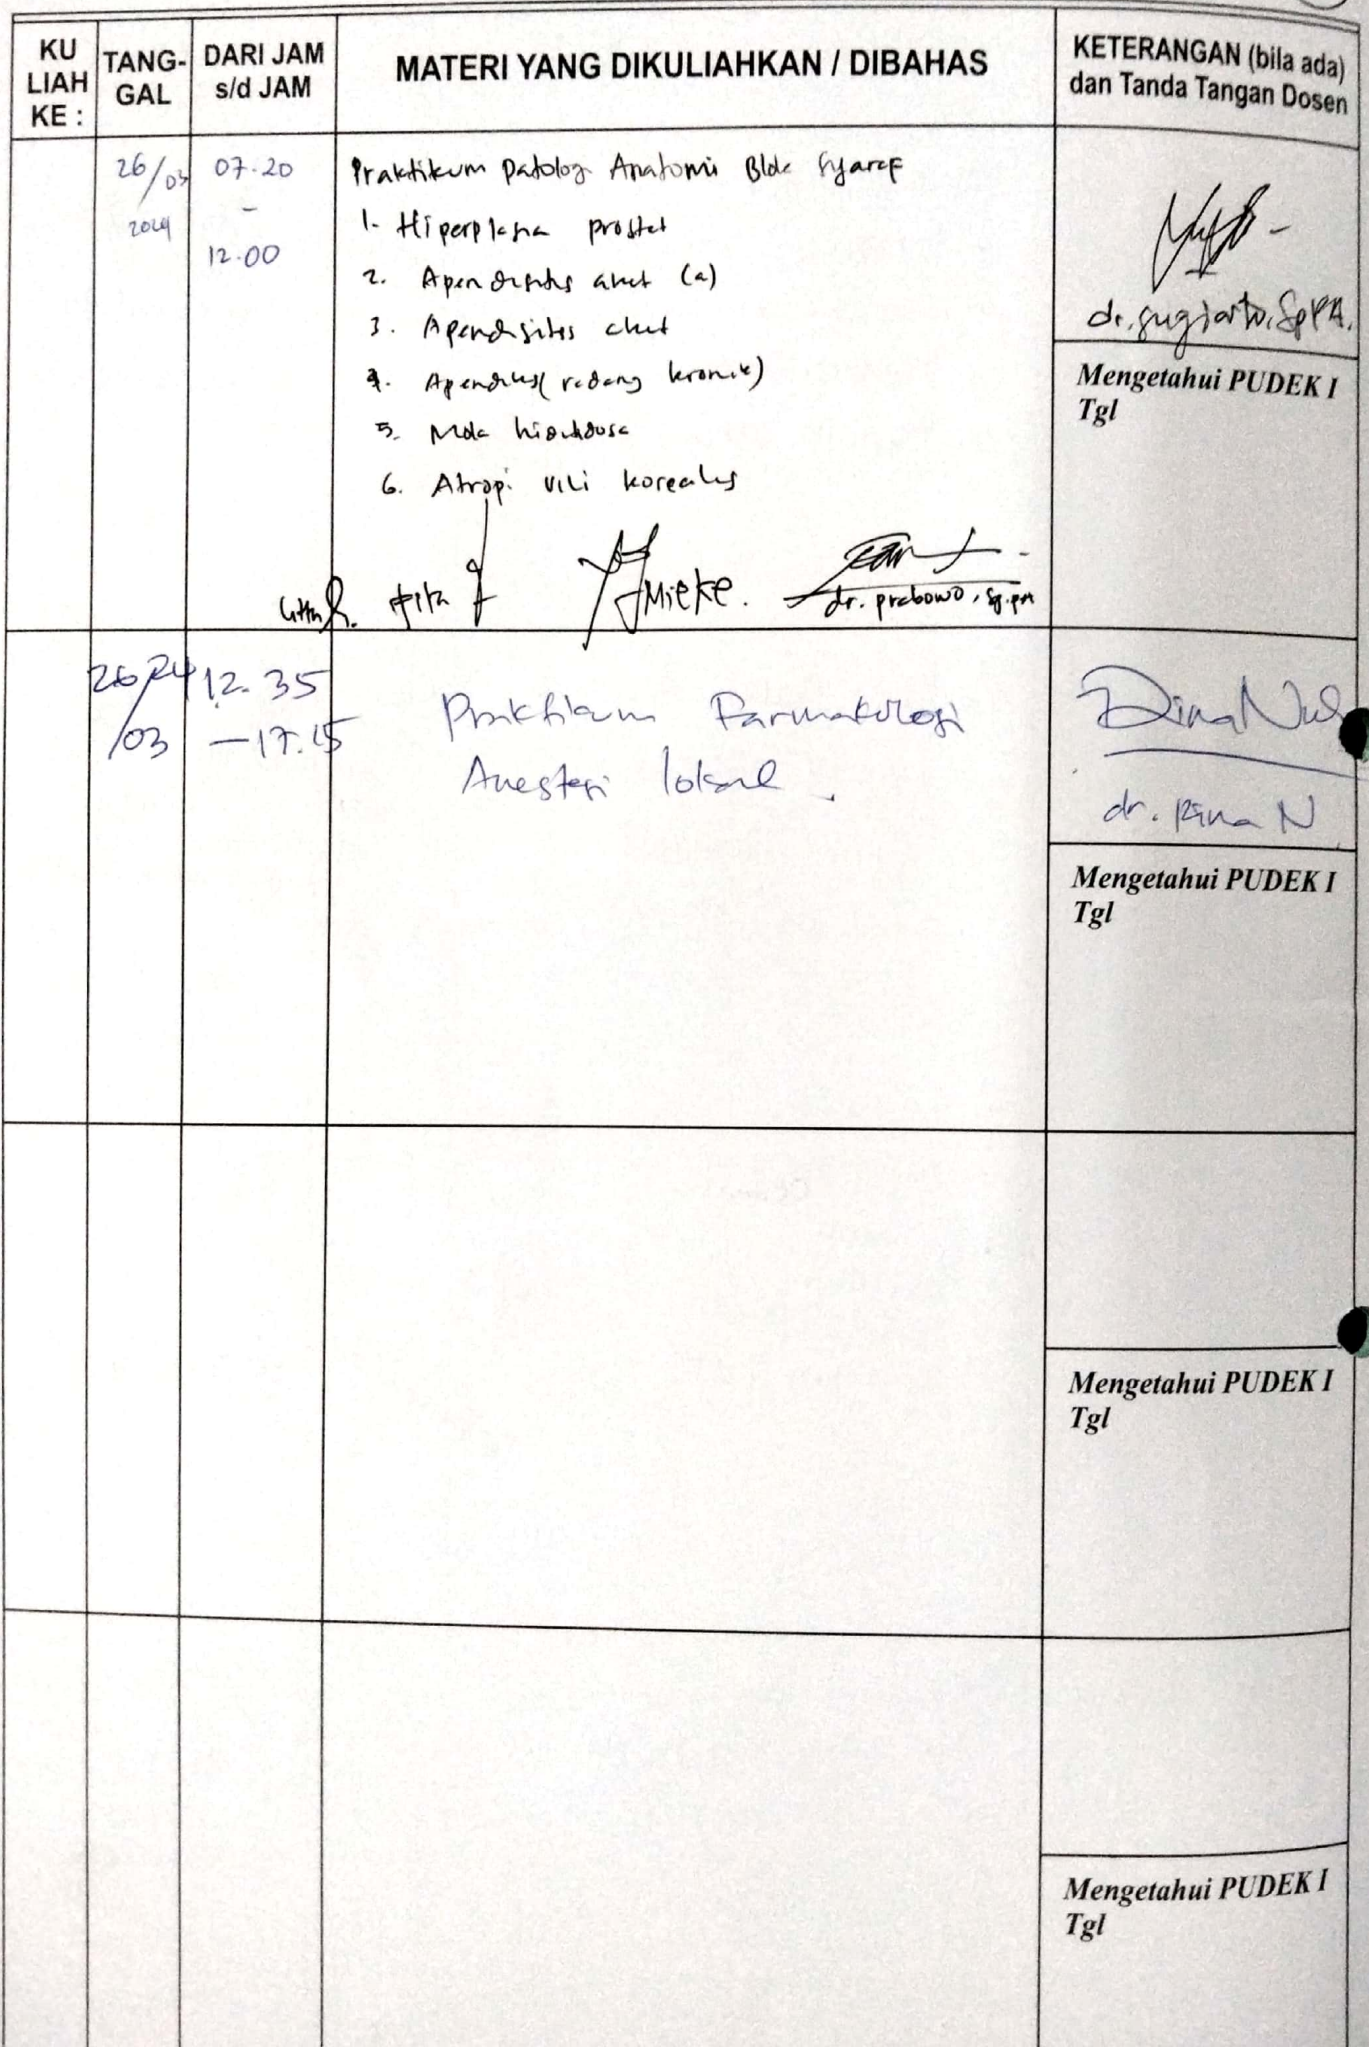 KU
LIAH
KE :
TANG-
GAL
DARI JAM
s/d JAM
MATERI YANG DIKULIAHKAN / DIBAHAS
KETERANGAN (bila ada)
dan Tanda Tangan Dosen
26/03
2024
07.20
-
12.00
Praktikum Patologi Anatomi Blok
1. Hiperplasia prostat
2. Apendisitis akut (a)
3. Apendisitis akut
4. Apendiks (radang kronik)
5. Mola hidatidosa
6. Atropi vili korealis
Mieke.
dr. prabowo, Sp.PA
dr. Sugiarto, SpPA.
Mengetahui PUDEK I
Tgl
26/24
/03
12.35
- 17.15
Praktikum Farmakologi
Anestesi lokal.
dr. N
Mengetahui PUDEK I
Tgl
Mengetahui PUDEK I
Tgl
Mengetahui PUDEK I
Tgl